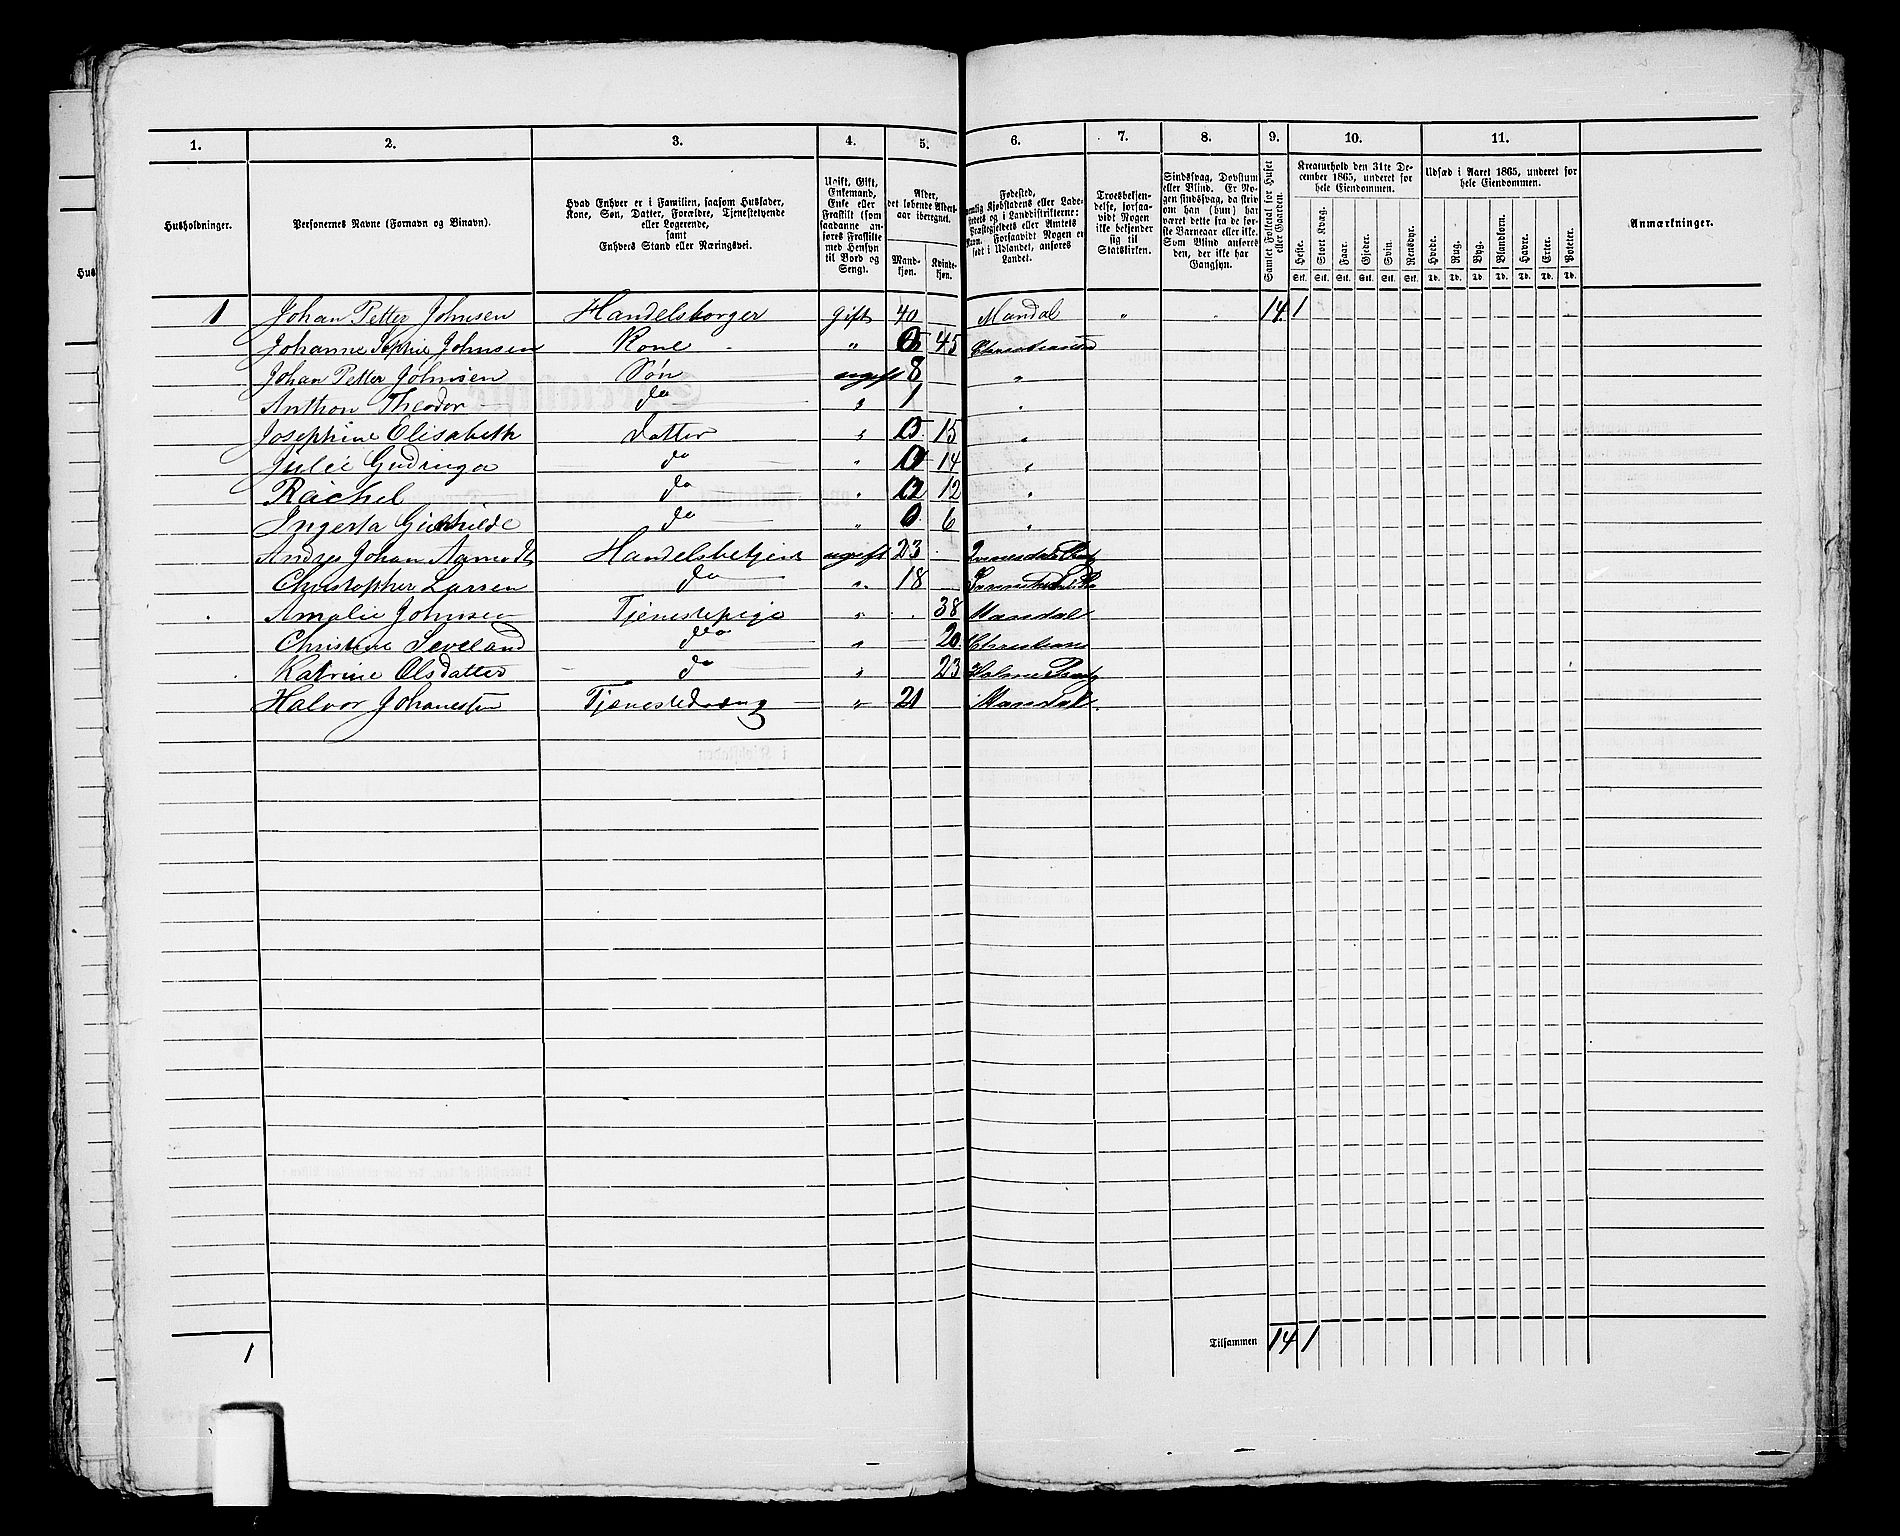 1. 2. 3. 4. 5. 6. 7. 8. 9. 10. 11.
Husholdninger.
Personernes Navne (Fornavn og Binavn).
Hvad Enhver er i Familien, saasom Husfader,
Kone, Søn, Datter, Forældre, Tjenestetyende
eller Logerende,
samt
Enhvers Stand eller Næringsvei.
Ugift, Gift,
Enkemand,
Enke eller
Fraskilt (som
saadanne an-
føres Fraskilte
med Hensyn
til Bord og
Seng).
Alder,
det løbende Alders-
aar iberegnet.
Mand-
kjøn.
Kvinde-
kjøn.
Fødested,
Landet.
Troesbekjen-
delse, forsaa-
vidt Nogen
ikke bekjender
sig til
Statskirken.
Sindssvag, Døvstum
eller Blind. Er No-
gen sindssvag, da skriv
om han (hun) har
været dette fra de før-
ste Barneaar eller ikke.
Som Blind anføres
den, der ikke har
Gangsyn.
Samlet Folketal for Huset
eller Gaarden.
Kreaturhold den 31te De-
cember 1865, underet for
hele Eiendommen.
Heste. Stort Kvæg. Faar. Gjeder. Svin. Rensdyr.
Stk. Stk. Stk. Stk. Stk. Stk.
Udsæd i Aaret 1865, underet for
hele Eiendommen.
Hvede. Rug. Byg. Blandkorn. Havre. Erter. Poteter.
Td. Td. Td. Td. Td. Td. Td.
Anmærkninger.
1 Johan Petter Johnsen Handelsborger Gift 40 Mandal " 14 1
Johanne Sophie Johnsen Kone " 45
Johan Petter Johnsen Søn ugift 8 "
Anthon Theodor do " 1 "
Josephine Elisabeth Datter " 15 "
Julie Gudringa do " 14 "
Rachel do " 12 "
do " 6 "
Johan ugift 23
Christopher Larsen do " 18
Amalie Johnsen Tjenestepige " 38 Mandal
Christine Seveland do " 20
Katrine Olsdatter do " 23
Halvor Tjenestedreng " 21 Mandal
1 Tilsammen 14 1